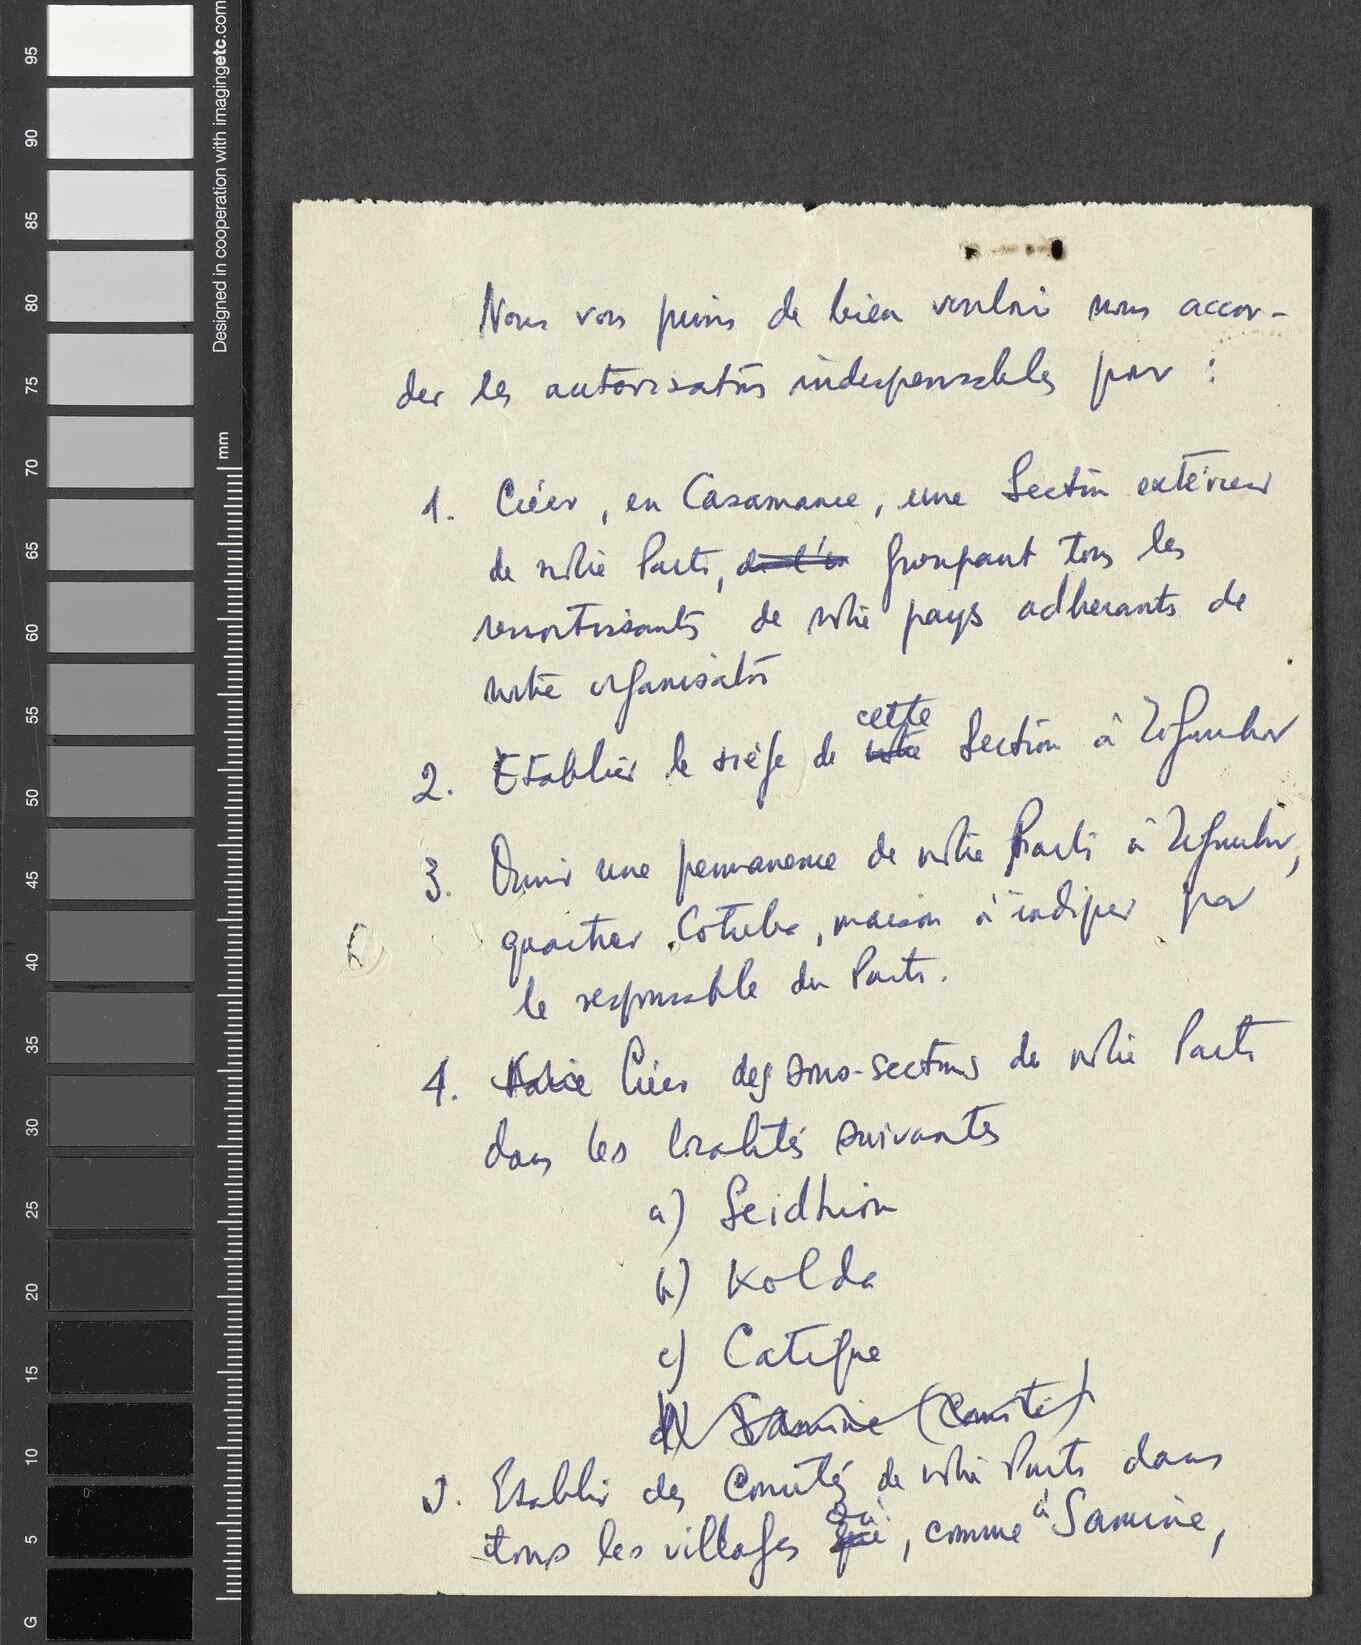 Nous vous prions de bien vouloir nous accor-
der les autorisations indispensables pour :
1. Créer, en Casamance, une Section extérieur
de notre Parti, de l'in groupant tous les
ressortissants de notre pays adherants de
notre organisation
cette
2. Etablir le siège de notre Section à Ziguinchor
3. Ouvrir une permanence de notre Parti à Ziguinchor,
quartier , maison à indiquer par
le responsable du Parti.
4. Créer des sous-sections de notre Parti
dans les localités suivantes
a) Seidhiou
b) Kolda
c) Catigne
d) Samine (Comité)
5. Etablir des Comités de notre Parti dans
où
tous les villages qui, comme à Samine,
95
90
85
80
75
70
65
60
55
50
45
40
35
30
25
20
15
10
5
G
mm
Designed in cooperation with imagingetc.com